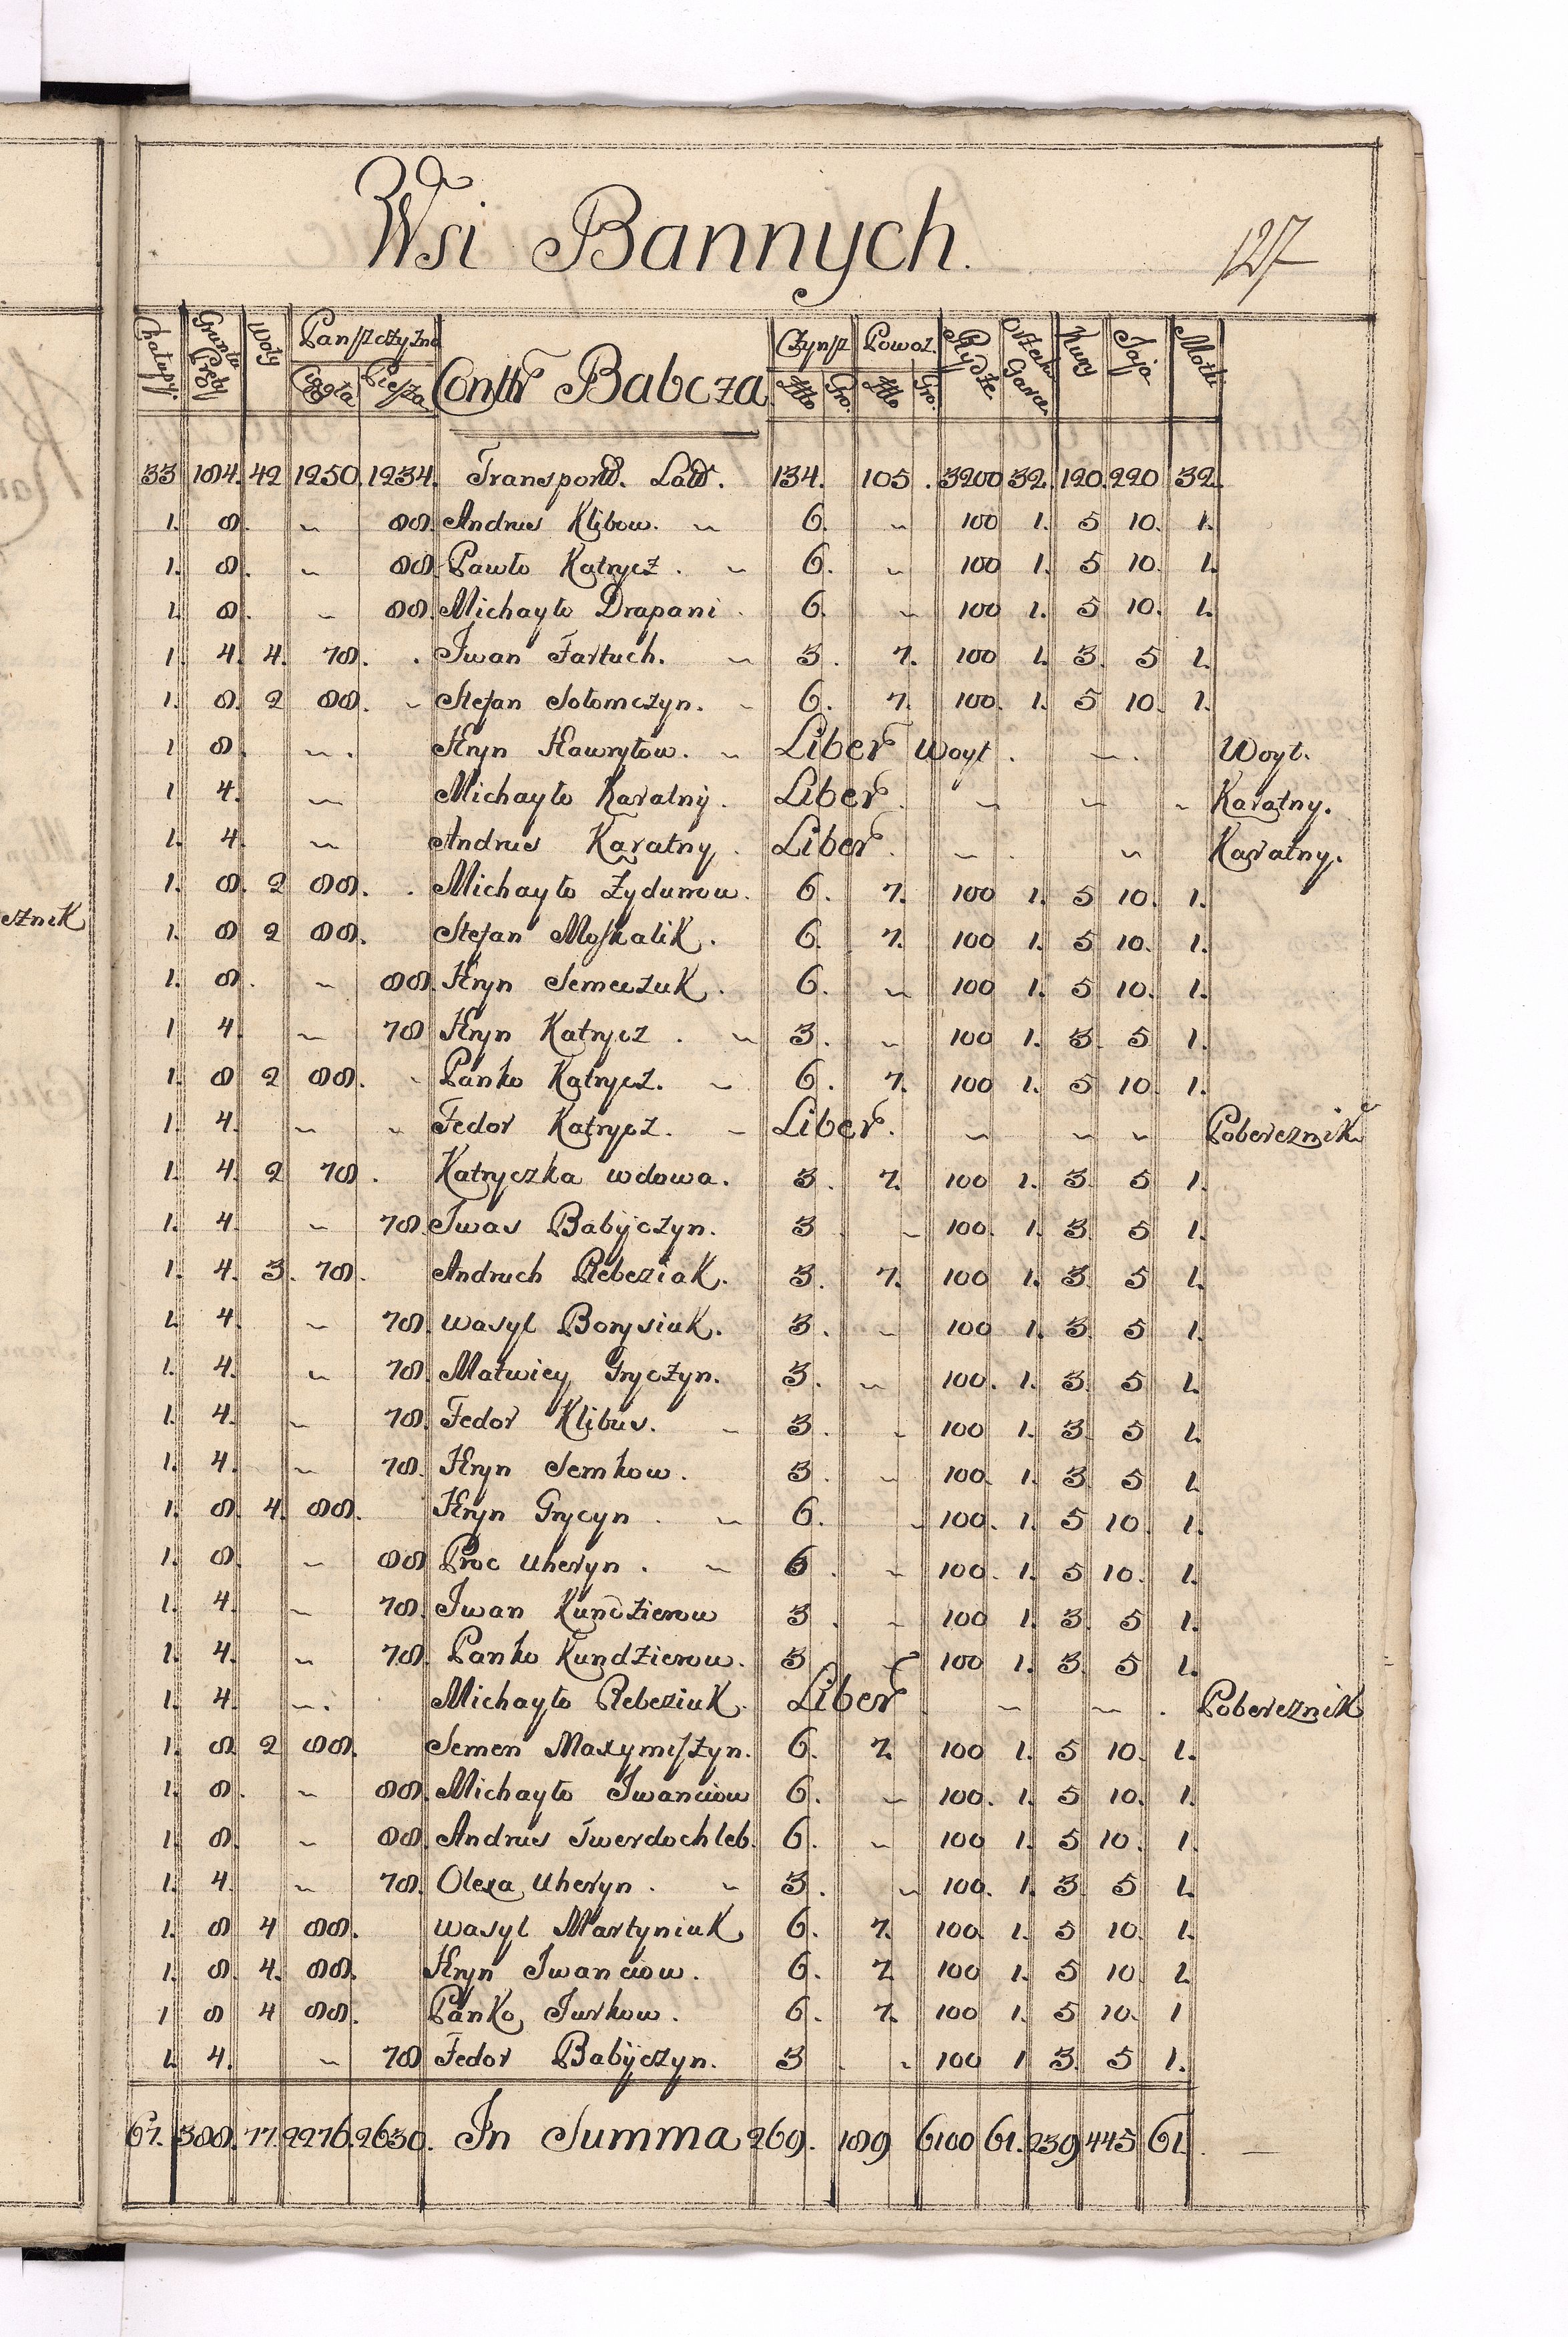 Wsi Bannych.
127
Chałupy Grunta Pręty Woły Panszczyzna Cżynsz Powoz. Rydze Orzech. Garce Kury Jaja Motki
Ciągła Piesza Contr Babcza Złło Gro. Złło Gro.
33 184. 42 1250. 1234. Transport Latt. 134. 105. 3200 32. 120. 220 32.
1. 8. ~ 88. Andrus Klibow. ~ 6. ~ 100 1. 5 10. 1.
1. 8. ~ 88. Pawło Katrycz. ~ 6. ~ 100 1. 5 10. 1.
1. 8. ~ 88. Michayło Drapani. 6. ~ 100 1. 5 10. 1.
1. 4. 4. 78. . Iwan Fartuch. ~ 3. 7. 100 1. 3. 5 1.
1. 8. 2 88. ~ Stefan Sołomczyn. ~ 6. 7. 100. 1. 5 10. 1.
1 8. ~. Hryn Hawryłow. ~ Liber Woyt. ~. Woyt.
1 4. ~ Michayło Karatny. Liber. ~ ~ ~ Karatny.
1. 4. ~ Andrus Karatny. Liber. ~. ~ Karatny.
1. 8. 2 88. . Michayło Zydunow. 6. 7. 100 1. 5 10. 1.
1. 8 2 88. Stefan Moskalik. 6. 7. 100 1. 5 10. 1.
1. 8. ~ 88. Hryn Semeczuk. 6. ~ 100 1. 5 10. 1.
1 4. ~ 78 Hryn Katrycz. ~ 3. ~ 100 1. 3. 5 1.
1. 8 2 88. ~ Panko Katrycz. ~ 6. 7. 100 1. 5 10. 1.
1. 4. ~ ~ Fedor Katrycz. ~ Liber. ~ ~ ~ Pobereznik
1. 4. 2 78. Katryczka wdowa. 3. 7. 100 1. 3. 5 1.
1. 4. ~ 78. Iwas Babijczyn. 3. ~ 100. 1. 3. 5 1.
1. 4. 3. 78. Andruch Rebeziak. 3. 7. 100 1. 3. 5 1.
1. 4. ~ 78. wasyl Borysiuk. 3. ~ 100 1. 3. 5 1.
1. 4. ~ 78. Matwiey Gryczyn. 3. ~ 100. 1. 3. 5 1.
1. 4. ~ 78. Fedor Klibus. ~ 3. ~ 100 1. 3. 5 1.
1. 4. ~ 78. Hryn Semkow. 3. ~ 100. 1. 3. 5 1.
1. 8. 4. 88. Hryn Grycyn. ~ 6. ~ 100. 1. 5 10. 1.
1. 8. ~ 88 Proc Uheryn. ~ 6. ~ 100. 1. 5 10. 1.
1. 4. ~ 78. Iwan Kundzierow 3. ~ 100 1. 3. 5 1.
1. 4. ~ 78. Panko Kundzierow. 3 ~ 100 1. 3. 5 1.
1. 4. ~. Michayło Rebeziuk. Liber. ~ ~. Pobereznik
1. 8. 2 88. Semen Maxymiszyn. 6. 7. 100 1. 5 10. 1.
1. 8. ~ 88. Michayło Iwanciow 6. ~ 100. 1. 5 10. 1.
1. 8. ~ 88. Andrus Twerdochleb. 6. ~ 100 1. 5 10. 1.
1. 4. ~ 78. Olexa Uheryn. ~ 3. ~ 100. 1. 3. 5 1.
1. 8 4 88. wasyl Martyniuk 6. 7. 100. 1. 5 10. 1.
1. 8. 4. 88. Hryn Iwanciow. 6. 7. 100 1. 5 10 1.
1 8 4 88. Panko Jurkow. 6. 7. 100 1. 5 10. 1
1. 4. ~ 78 Fedor Babijczyn. 3. ~ 100 1 3. 5 1.
67. 388. 77. 2276. 2630. In Summa 269. 189 6100 61. 239 445 61.